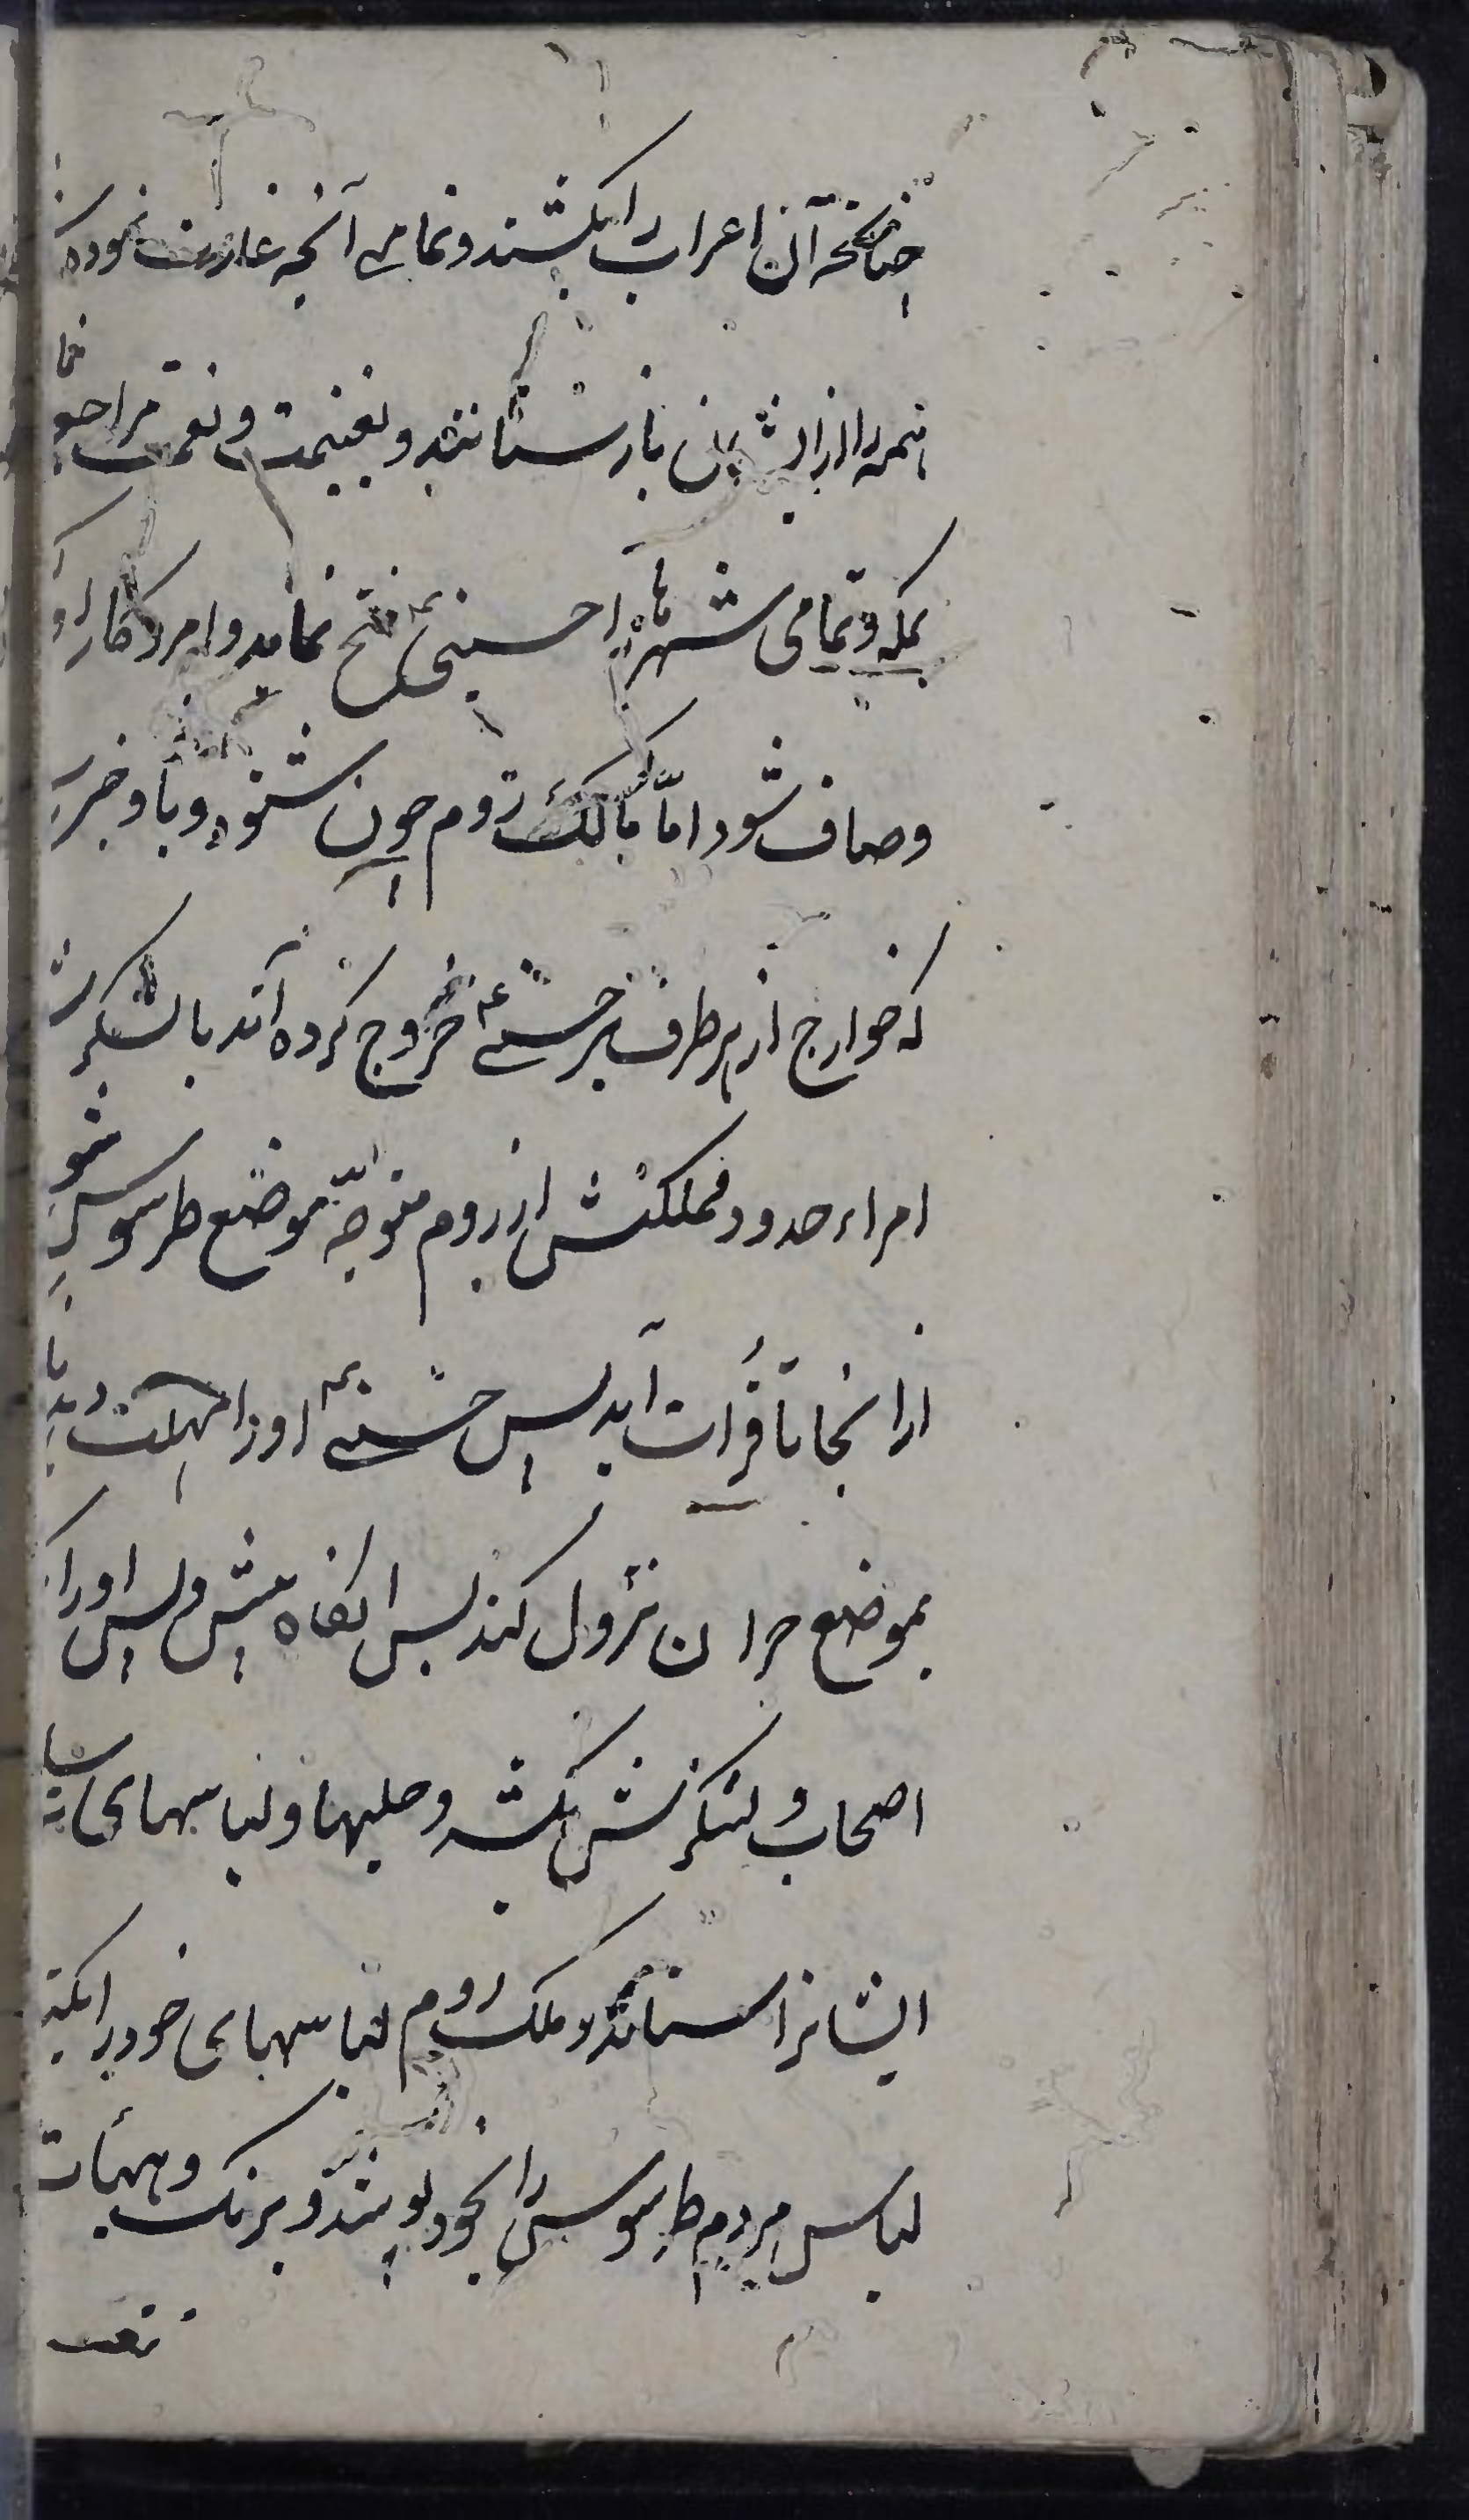 چنانکه آن اعراب را بکشند و تمامی آنچه غارت نموده
همه را از ایشان باز ستانند و بغنیمت و نعمت مراجعو
بلکه و تمامی شهرها را حسنی فتح نماید و امر و کار او
و صاف شود امّا مالک روم چون بشنود و باو خبر
که خوارج از هر طرف بر حسنی خروج کرده‌اند با لشکر
امراء حدود مملکتش از روم متوجّه موضع طرسوس شو
از انجا تا فرات آید پس حسنی او را مهلت دهد تا
بموضع حران نزول کند پس انگاه پیش و پس او را
اصحاب و لشکرش بکشد و حلیها و لباسهای
ایشانرا ستانند و ملک روم لباسهای خود را
لباس مردم طرسوس را بخود پوشند و برنگ و هیأت